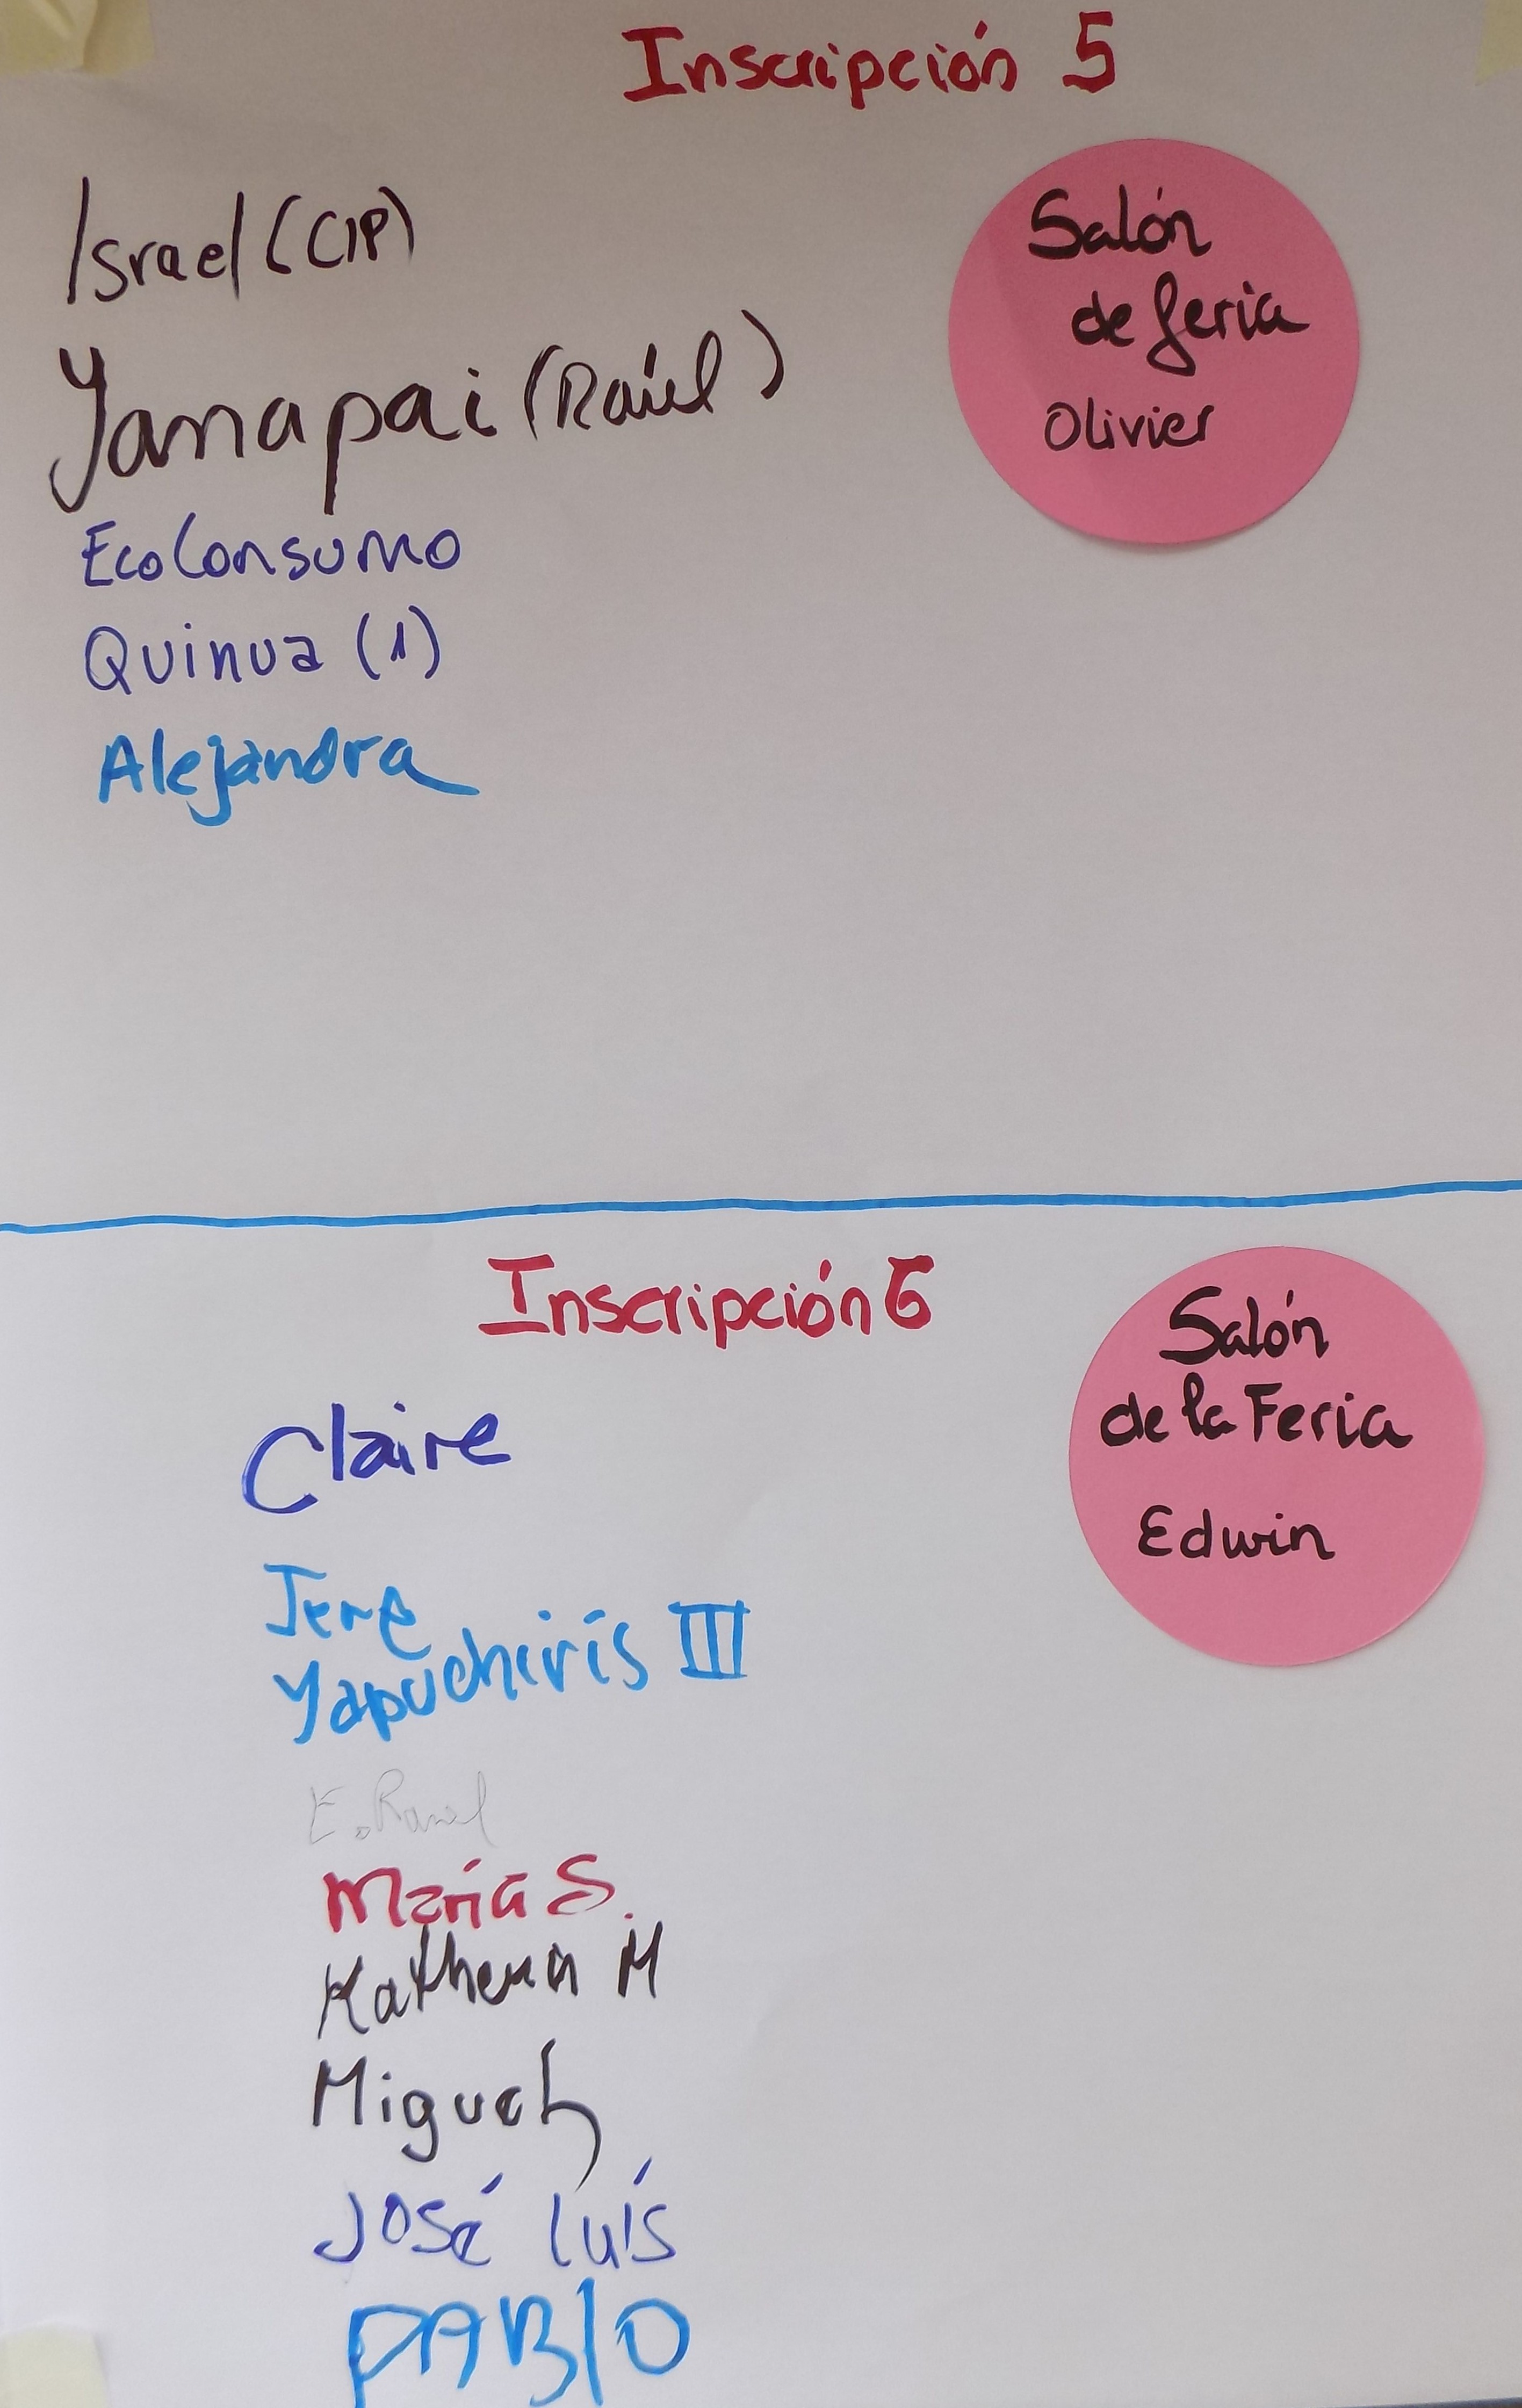 Inscripción 5
Israel (CIP)
Yanapai (Raúl)
EcoConsumo
Quinua (1)
Alejandra
Salón
de feria
Olivier
Inscripción 6
Salón
de la Feria
Edwin
Claire
Jere
Yapuchiris III
E.
María S.
M
Miguel
José Luís
PABlO